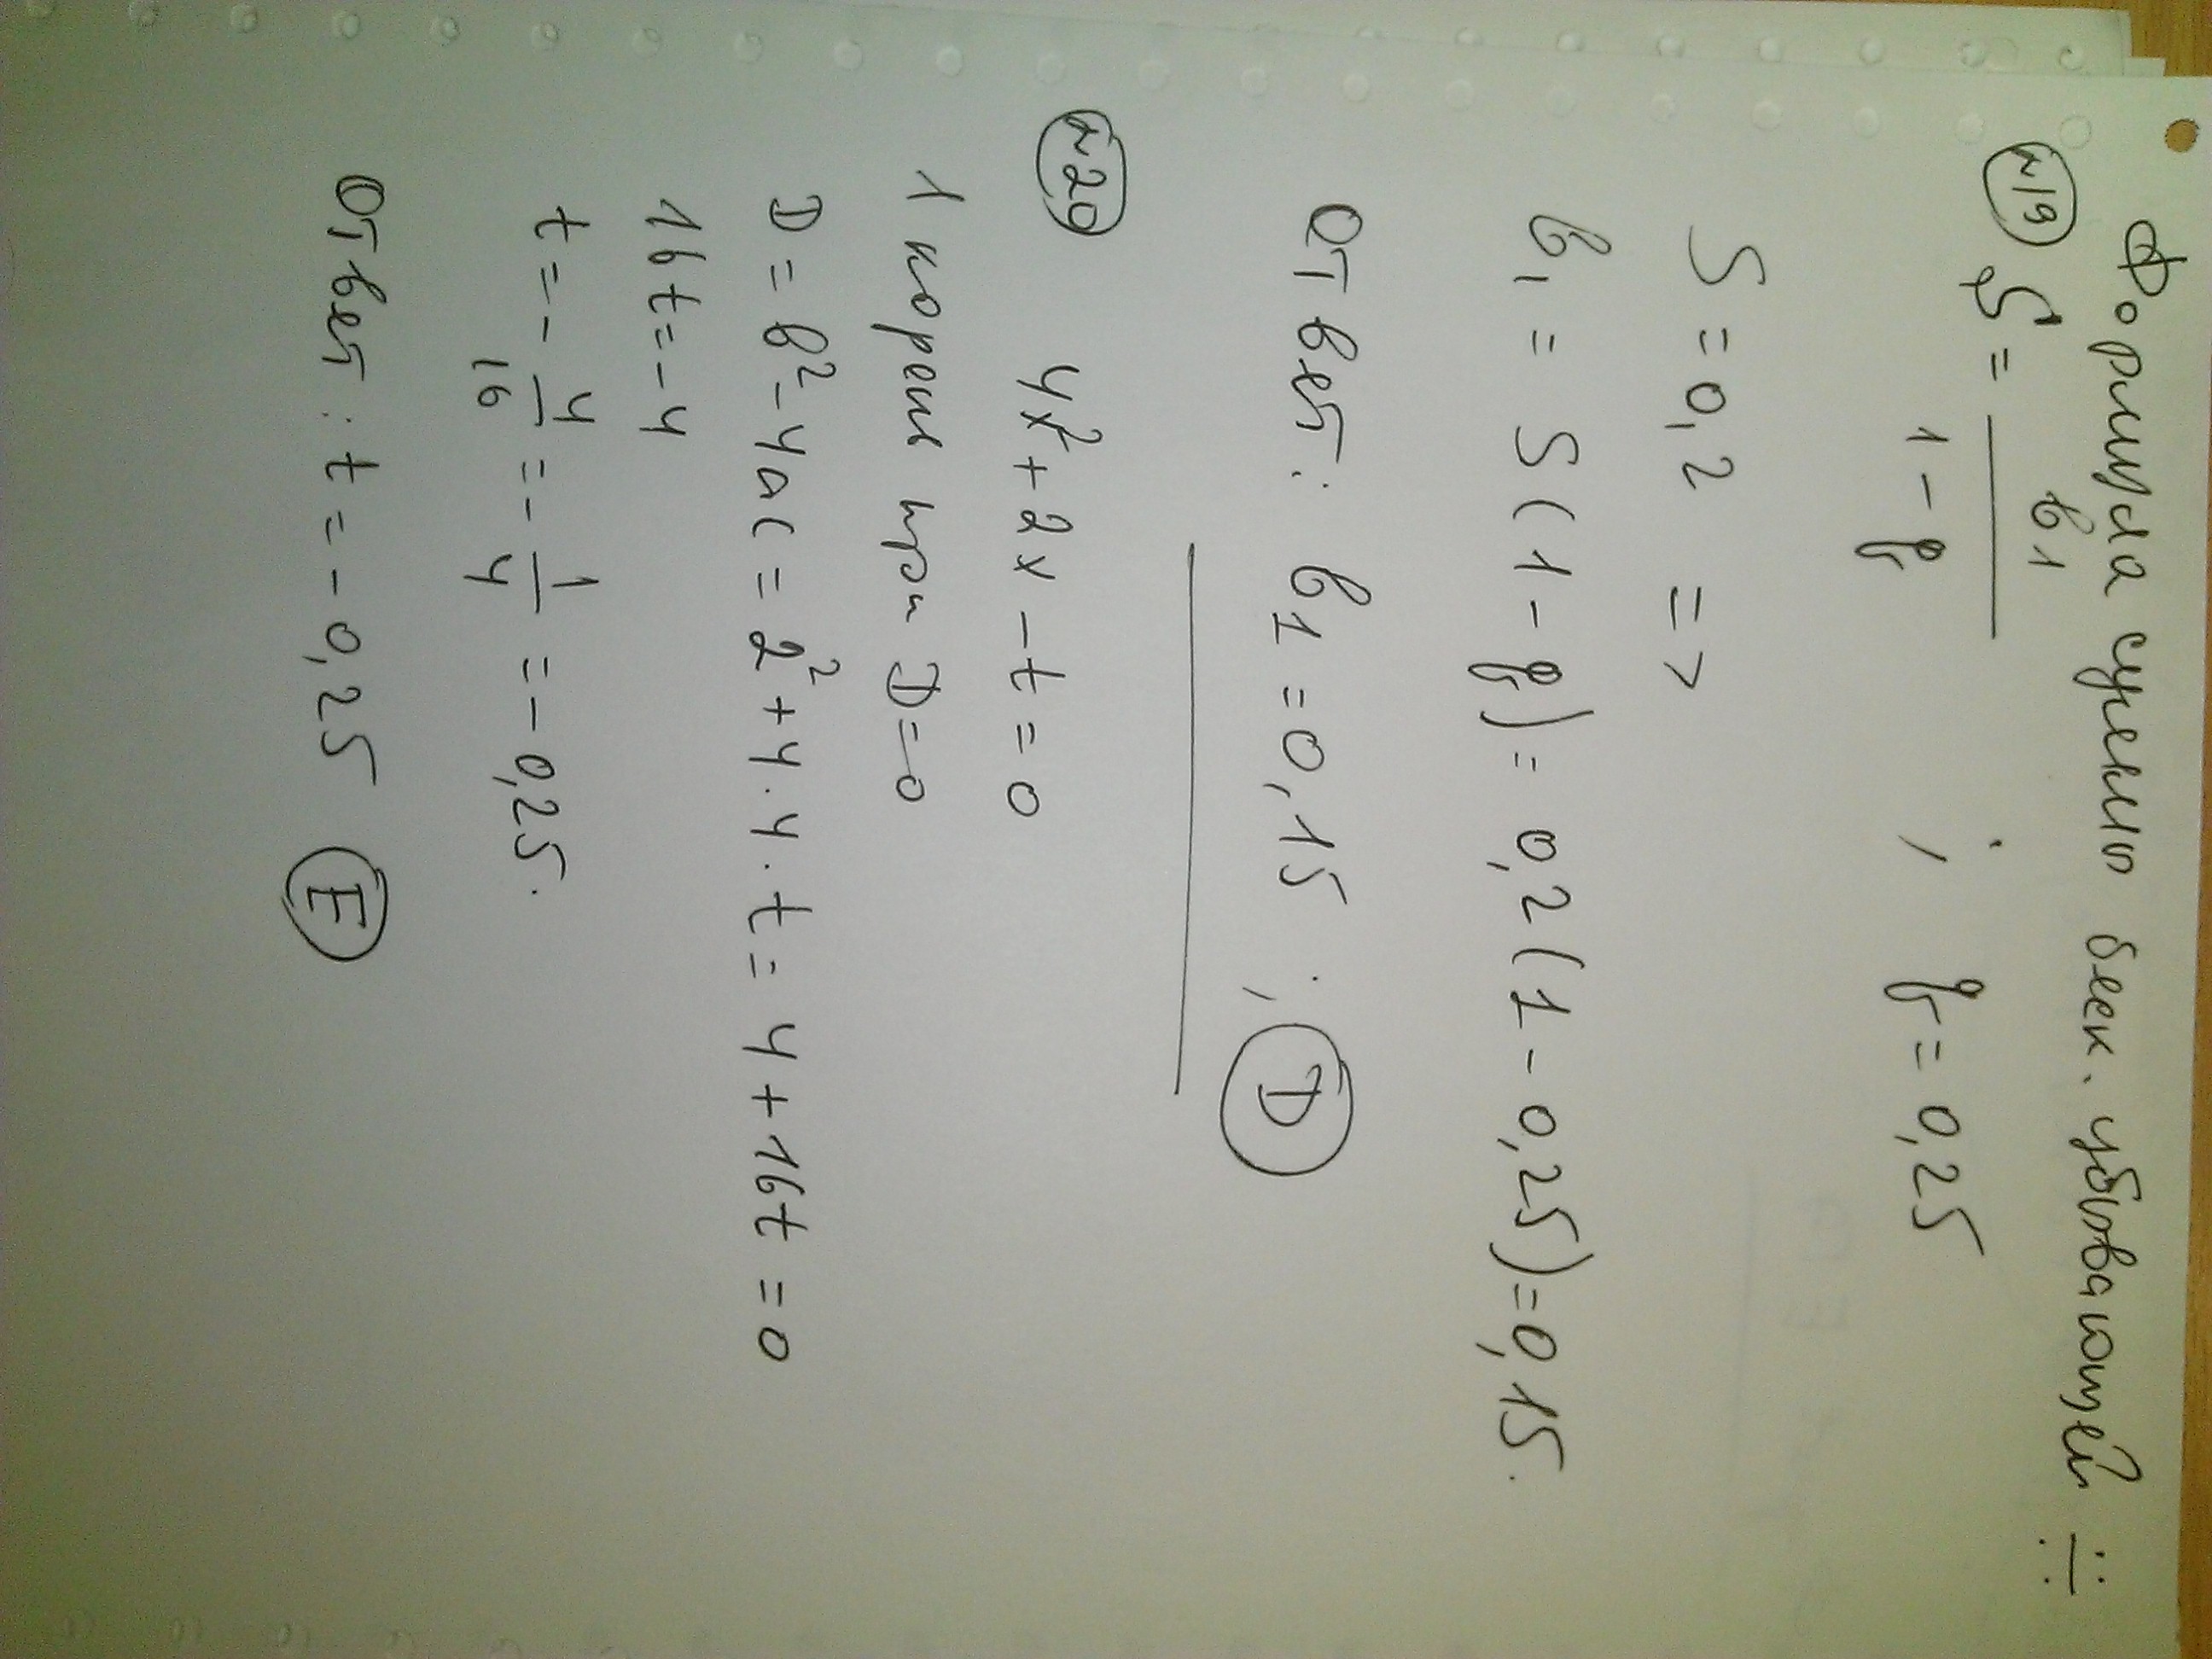 Формула суммы беск. убывающей ∺
№19 S = b₁ / (1 - q) ; q = 0,25
S = 0,2 =>
b₁ = S(1 - q) = 0,2(1 - 0,25) = 0,15.
Ответ: b₁ = 0,15 ; D
№20 4x² + 2x - t = 0
1 корень при D = 0
D = b² - 4ac = 2² + 4·4·t = 4 + 16t = 0
16t = -4
t = - 4/16 = - 1/4 = - 0,25.
Ответ: t = - 0,25 E